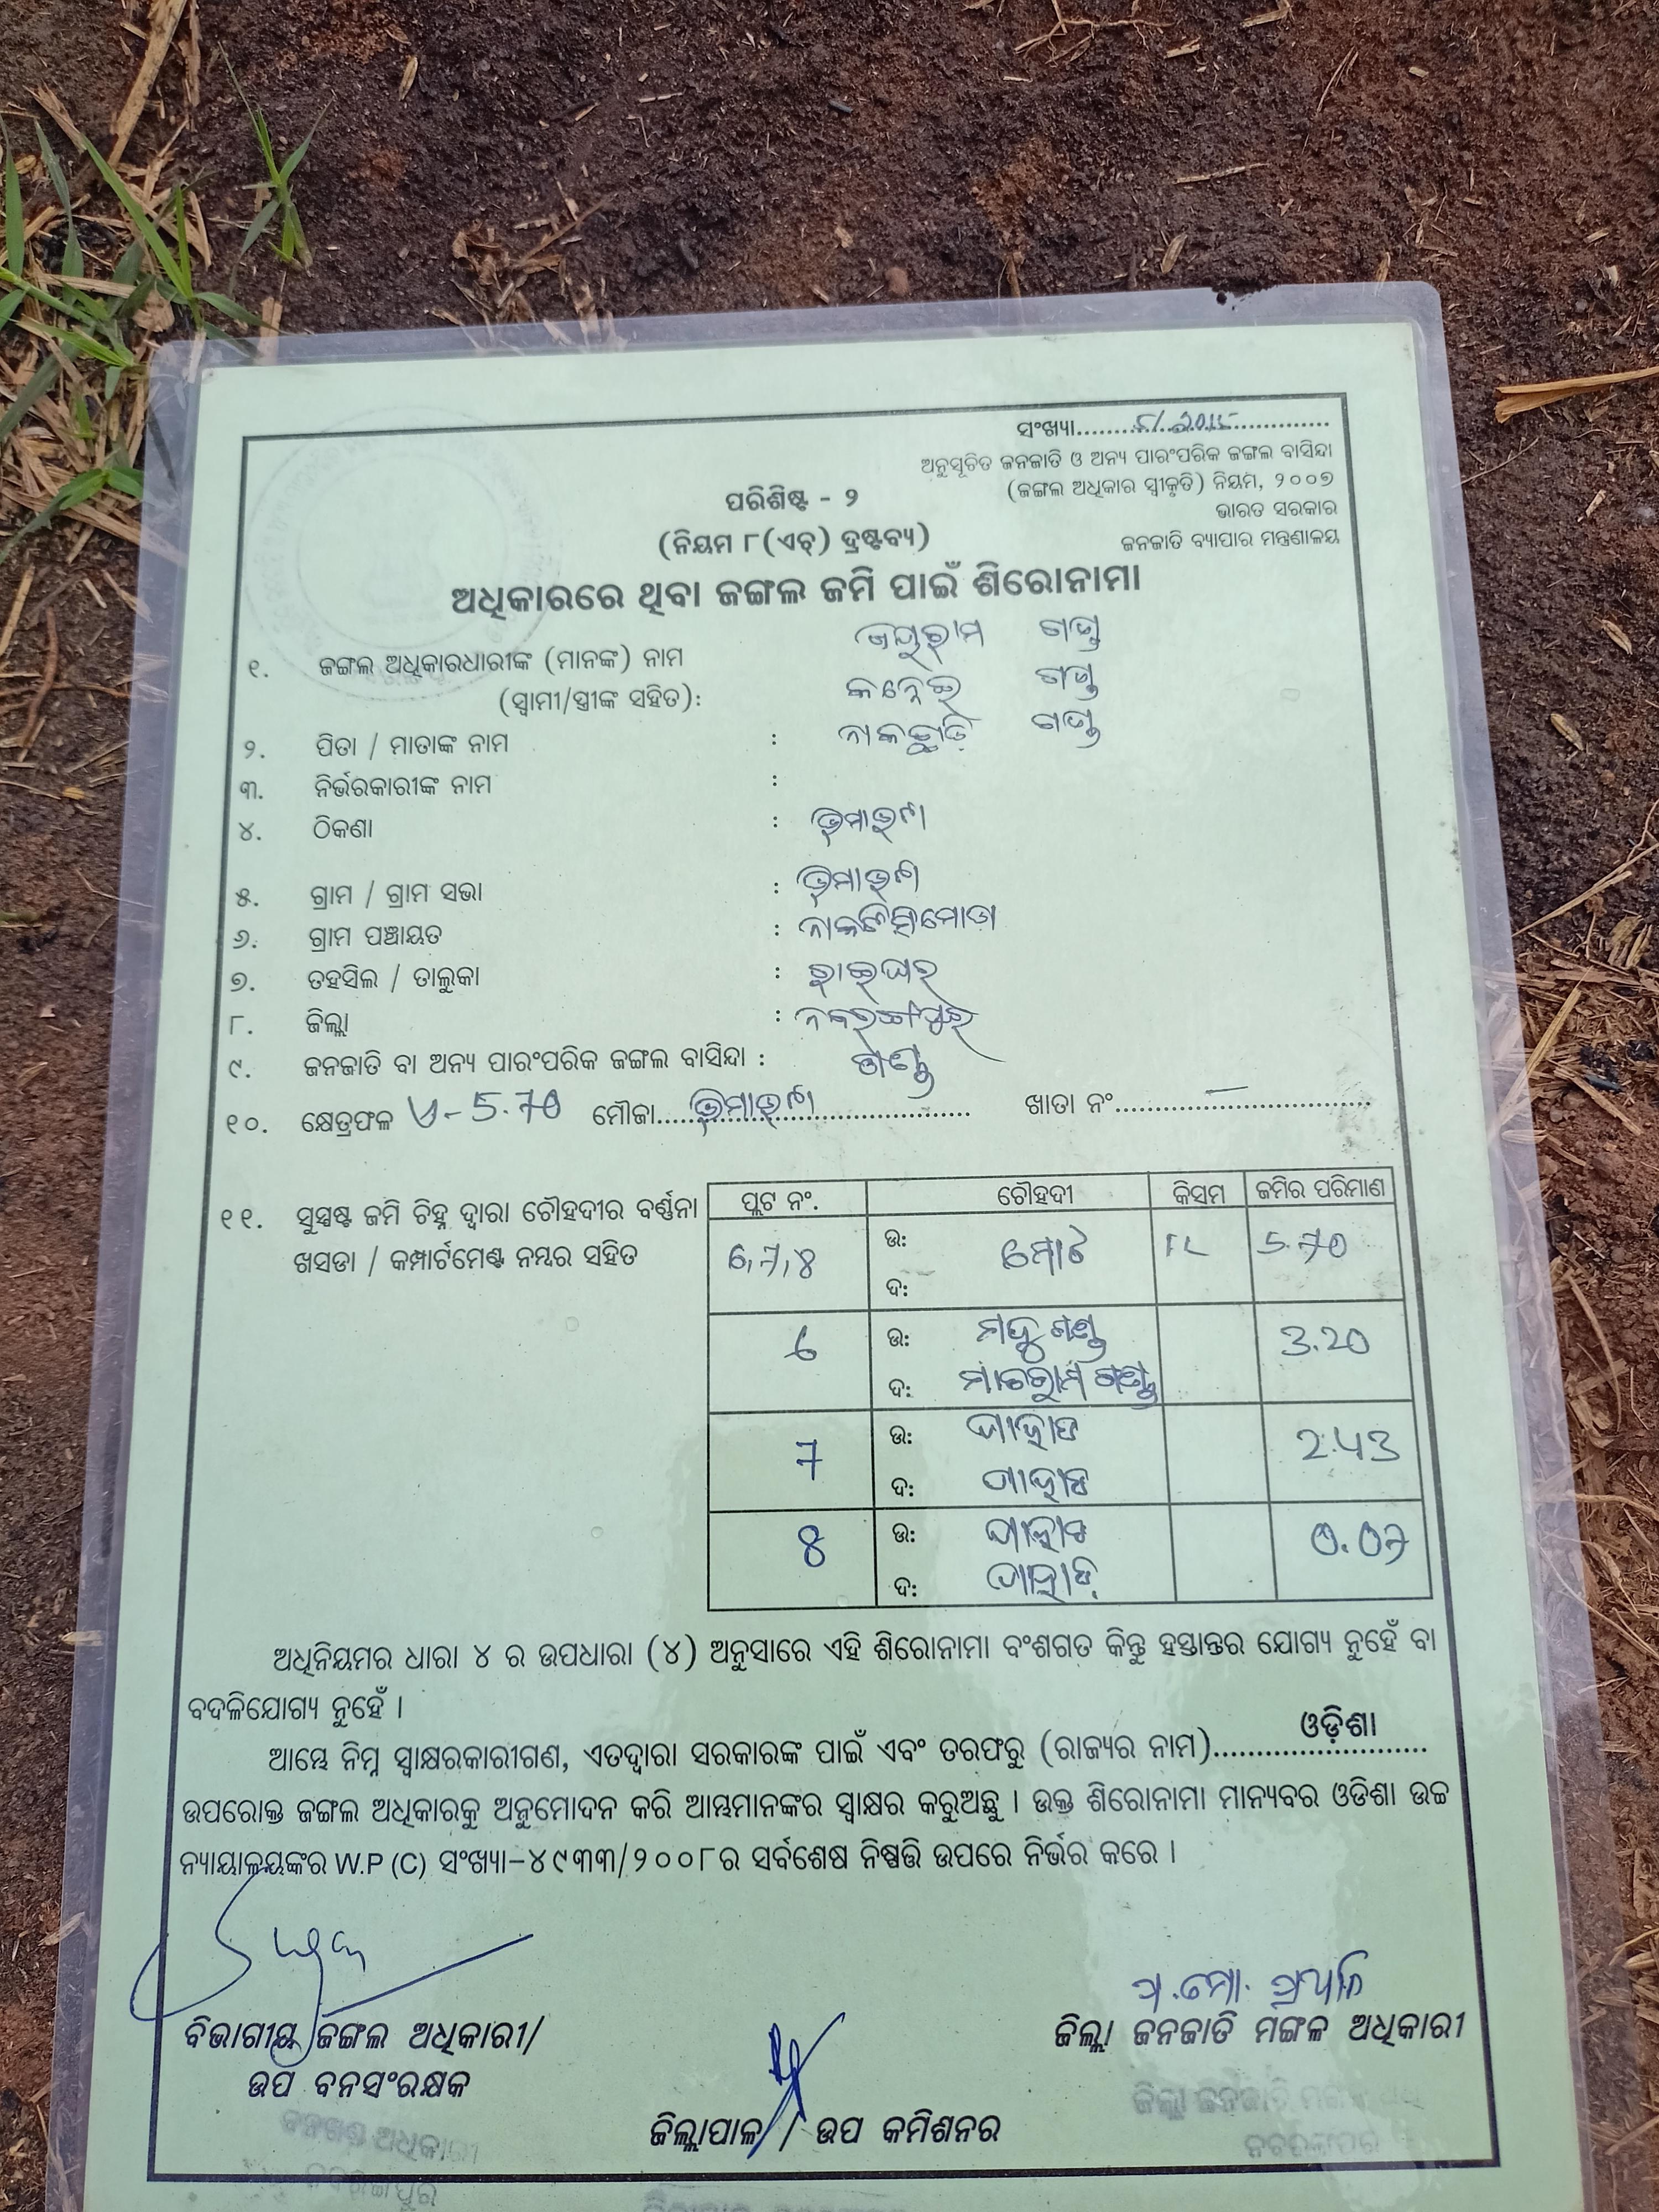 ସଂଖ୍ୟା....................
ଅନୁସୂଚିତ ଜନଜାତି ଓ ଅନ୍ୟ ପାରଂପରିକ ଜଙ୍ଗଲ ବାସିନ୍ଦା
(ଜଙ୍ଗଲ ଅଧିକାର ସ୍ୱୀକୃତି) ନିୟମ, ୨୦୦୭
ଭାରତ ସରକାର
ଜନଜାତି ବ୍ୟାପାର ମନ୍ତ୍ରଣାଳୟ
ପରିଶିଷ୍ଟ - ୨
(ନିୟମ ୮(ଏଚ୍) ଦ୍ରଷ୍ଟବ୍ୟ)
ଅଧିକାରରେ ଥିବା ଜଙ୍ଗଲ ଜମି ପାଇଁ ଶିରୋନାମା
୧. ଜଙ୍ଗଲ ଅଧିକାରଧାରୀଙ୍କ (ମାନଙ୍କ) ନାମ ଜୟରାମ ଗଣ୍ଡ
(ସ୍ୱାମୀ/ସ୍ତ୍ରୀଙ୍କ ସହିତ): ଗଣ୍ଡ
୨. ପିତା / ମାତାଙ୍କ ନାମ : ନାକଛଡ଼ି ଗଣ୍ଡ
୩. ନିର୍ଭରକାରୀଙ୍କ ନାମ :
୪. ଠିକଣା :
୫. ଗ୍ରାମ / ଗ୍ରାମ ସଭା :
୬. ଗ୍ରାମ ପଞ୍ଚାୟତ :
୭. ତହସିଲ / ତାଲୁକା : ରାଇଘର
୮. ଜିଲ୍ଲା : ନବରଙ୍ଗପୁର
୯. ଜନଜାତି ବା ଅନ୍ୟ ପାରଂପରିକ ଜଙ୍ଗଲ ବାସିନ୍ଦା : ଗଣ୍ଡ
୧୦. କ୍ଷେତ୍ରଫଳ 5.70 ମୌଜା.................... ଖାତା ନଂ....................
୧୧. ସୁସ୍ପଷ୍ଟ ଜମି ଚିହ୍ନ ଦ୍ୱାରା ଚୌହଦୀର ବର୍ଣ୍ଣନା
ଖସଡା / କମ୍ପାର୍ଟମେଣ୍ଟ ନମ୍ବର ସହିତ
ପ୍ଲଟ ନଂ. ଚୌହଦୀ କିସମ ଜମିର ପରିମାଣ
6,7,8 ଉ: ମୋଟ 5.70
ଦ:
6 ଉ: ଗଣ୍ଡ 3.20
ଦ: ଗଣ୍ଡ
7 ଉ: ପାହାଡ 2.43
ଦ: ପାହାଡ
8 ଉ: ପାହାଡ 0.07
ଦ: ପାହାଡ
ଅଧିନିୟମର ଧାରା ୪ ର ଉପଧାରା (୪) ଅନୁସାରେ ଏହି ଶିରୋନାମା ବଂଶଗତ କିନ୍ତୁ ହସ୍ତାନ୍ତର ଯୋଗ୍ୟ ନୁହେଁ ବା
ବଦଳିଯୋଗ୍ୟ ନୁହେଁ ।
ଆମ୍ଭେ ନିମ୍ନ ସ୍ୱାକ୍ଷରକାରୀଗଣ, ଏତଦ୍ୱାରା ସରକାରଙ୍କ ପାଇଁ ଏବଂ ତରଫରୁ (ରାଜ୍ୟର ନାମ)....ଓଡ଼ିଶା....
ଉପରୋକ୍ତ ଜଙ୍ଗଲ ଅଧିକାରକୁ ଅନୁମୋଦନ କରି ଆମ୍ଭମାନଙ୍କର ସ୍ୱାକ୍ଷର କରୁଅଛୁ । ଉକ୍ତ ଶିରୋନାମା ମାନ୍ୟବର ଓଡିଶା ଉଚ୍ଚ
ନ୍ୟାୟାଳୟଙ୍କର W.P (C) ସଂଖ୍ୟା-୪୯୩୩/୨୦୦୮ର ସର୍ବଶେଷ ନିଷ୍ପତ୍ତି ଉପରେ ନିର୍ଭର କରେ ।
ବିଭାଗୀୟ ଜଙ୍ଗଲ ଅଧିକାରୀ/
ଉପ ବନସଂରକ୍ଷକ
ଜିଲ୍ଲାପାଳ / ଉପ କମିଶନର
ଜିଲ୍ଲା ଜନଜାତି ମଙ୍ଗଳ ଅଧିକାରୀ